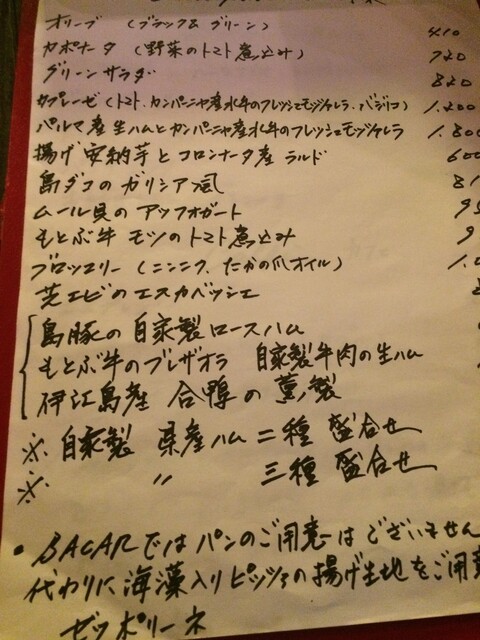 オリーブ (ブラック& グリーン) 410
カポナータ (野菜のトマト煮込み) 720
グリーンサラダ 820
カプレーゼ (トマト、カンパーニャ産水牛のフレッシュモッツァレラ、バジリコ) 1,200
パルマ産生ハムとカンパーニャ産水牛のフレッシュモッツァレラ 1,800
揚げ安納芋とコロンナータ産 ラルド 600
島ダコのガリシア風
ムール貝のアッフォガート
もとぶ牛 モツのトマト煮込み
ブロッコリー (ニンニク、たかの爪オイル)
芝エビのエスカベッシェ
島豚の自家製ロースハム
もとぶ牛のブレザオラ 自家製牛肉の生ハム
伊江島産 合鴨の薫製
※ 自家製 県産ハム二種 盛合せ
※ 〃 三種 盛合せ
・BACARではパンのご用意はございません
代わりに海藻入りピッツァの揚げ生地をご用意
ゼッポリーネ